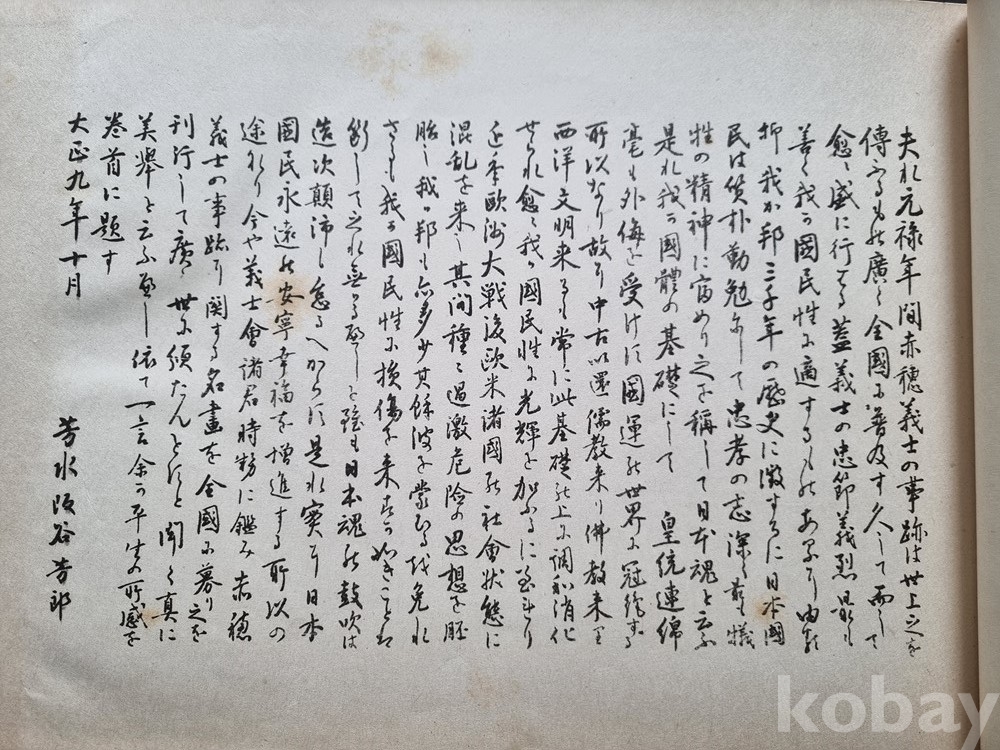 夫れ元禄年間赤穂義士の事跡は世上之を
傳ふるもの廣く全國に普及す久して而して
愈々盛に行はる蓋義士の忠節義烈最も
善く我が國民性に適するものあるに由る
抑我が邦三千年の歴史に徴するに日本國
民は質朴勤勉にして忠孝の志深く最も犠
牲の精神に富めり之を稱して日本魂と云ふ
是れ我が國體の基礎にして 皇統連綿
毫も外侮を受けず國運の世界に冠絶する
所以なり故に中古以還儒教来り佛教来り
西洋文明来るも常に此基礎の上に調和消化
せられ愈々我が國民性に光輝を加ふるに至れり
近年歐洲大戦後欧米諸國の社會状態に
混乱を来し其间種々過激危険の思想を胚
胎し我が邦も亦多少其餘波を蒙るを免れ
さるも我が國民性に損傷を来すが如きことは
断して之れ無かるべしと雖も日本魂の鼓吹は
造次顛沛も怠るへからす是れ實に日本
國民永遠の安寧幸福を増進する所以の
途なり今や義士會諸君時勢に鑑み赤穂
義士の事跡に関する名畫を全國に募り之を
刊行して廣く世に頒たんとすと聞く真に
美舉と云ふべし依て一言余が平生の所感を
巻首に題す
大正九年十月
芳水阪谷芳郎
kobay